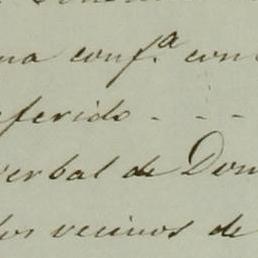 na conf.ª con
eferido - - -
verbal de Don
los vecinos de